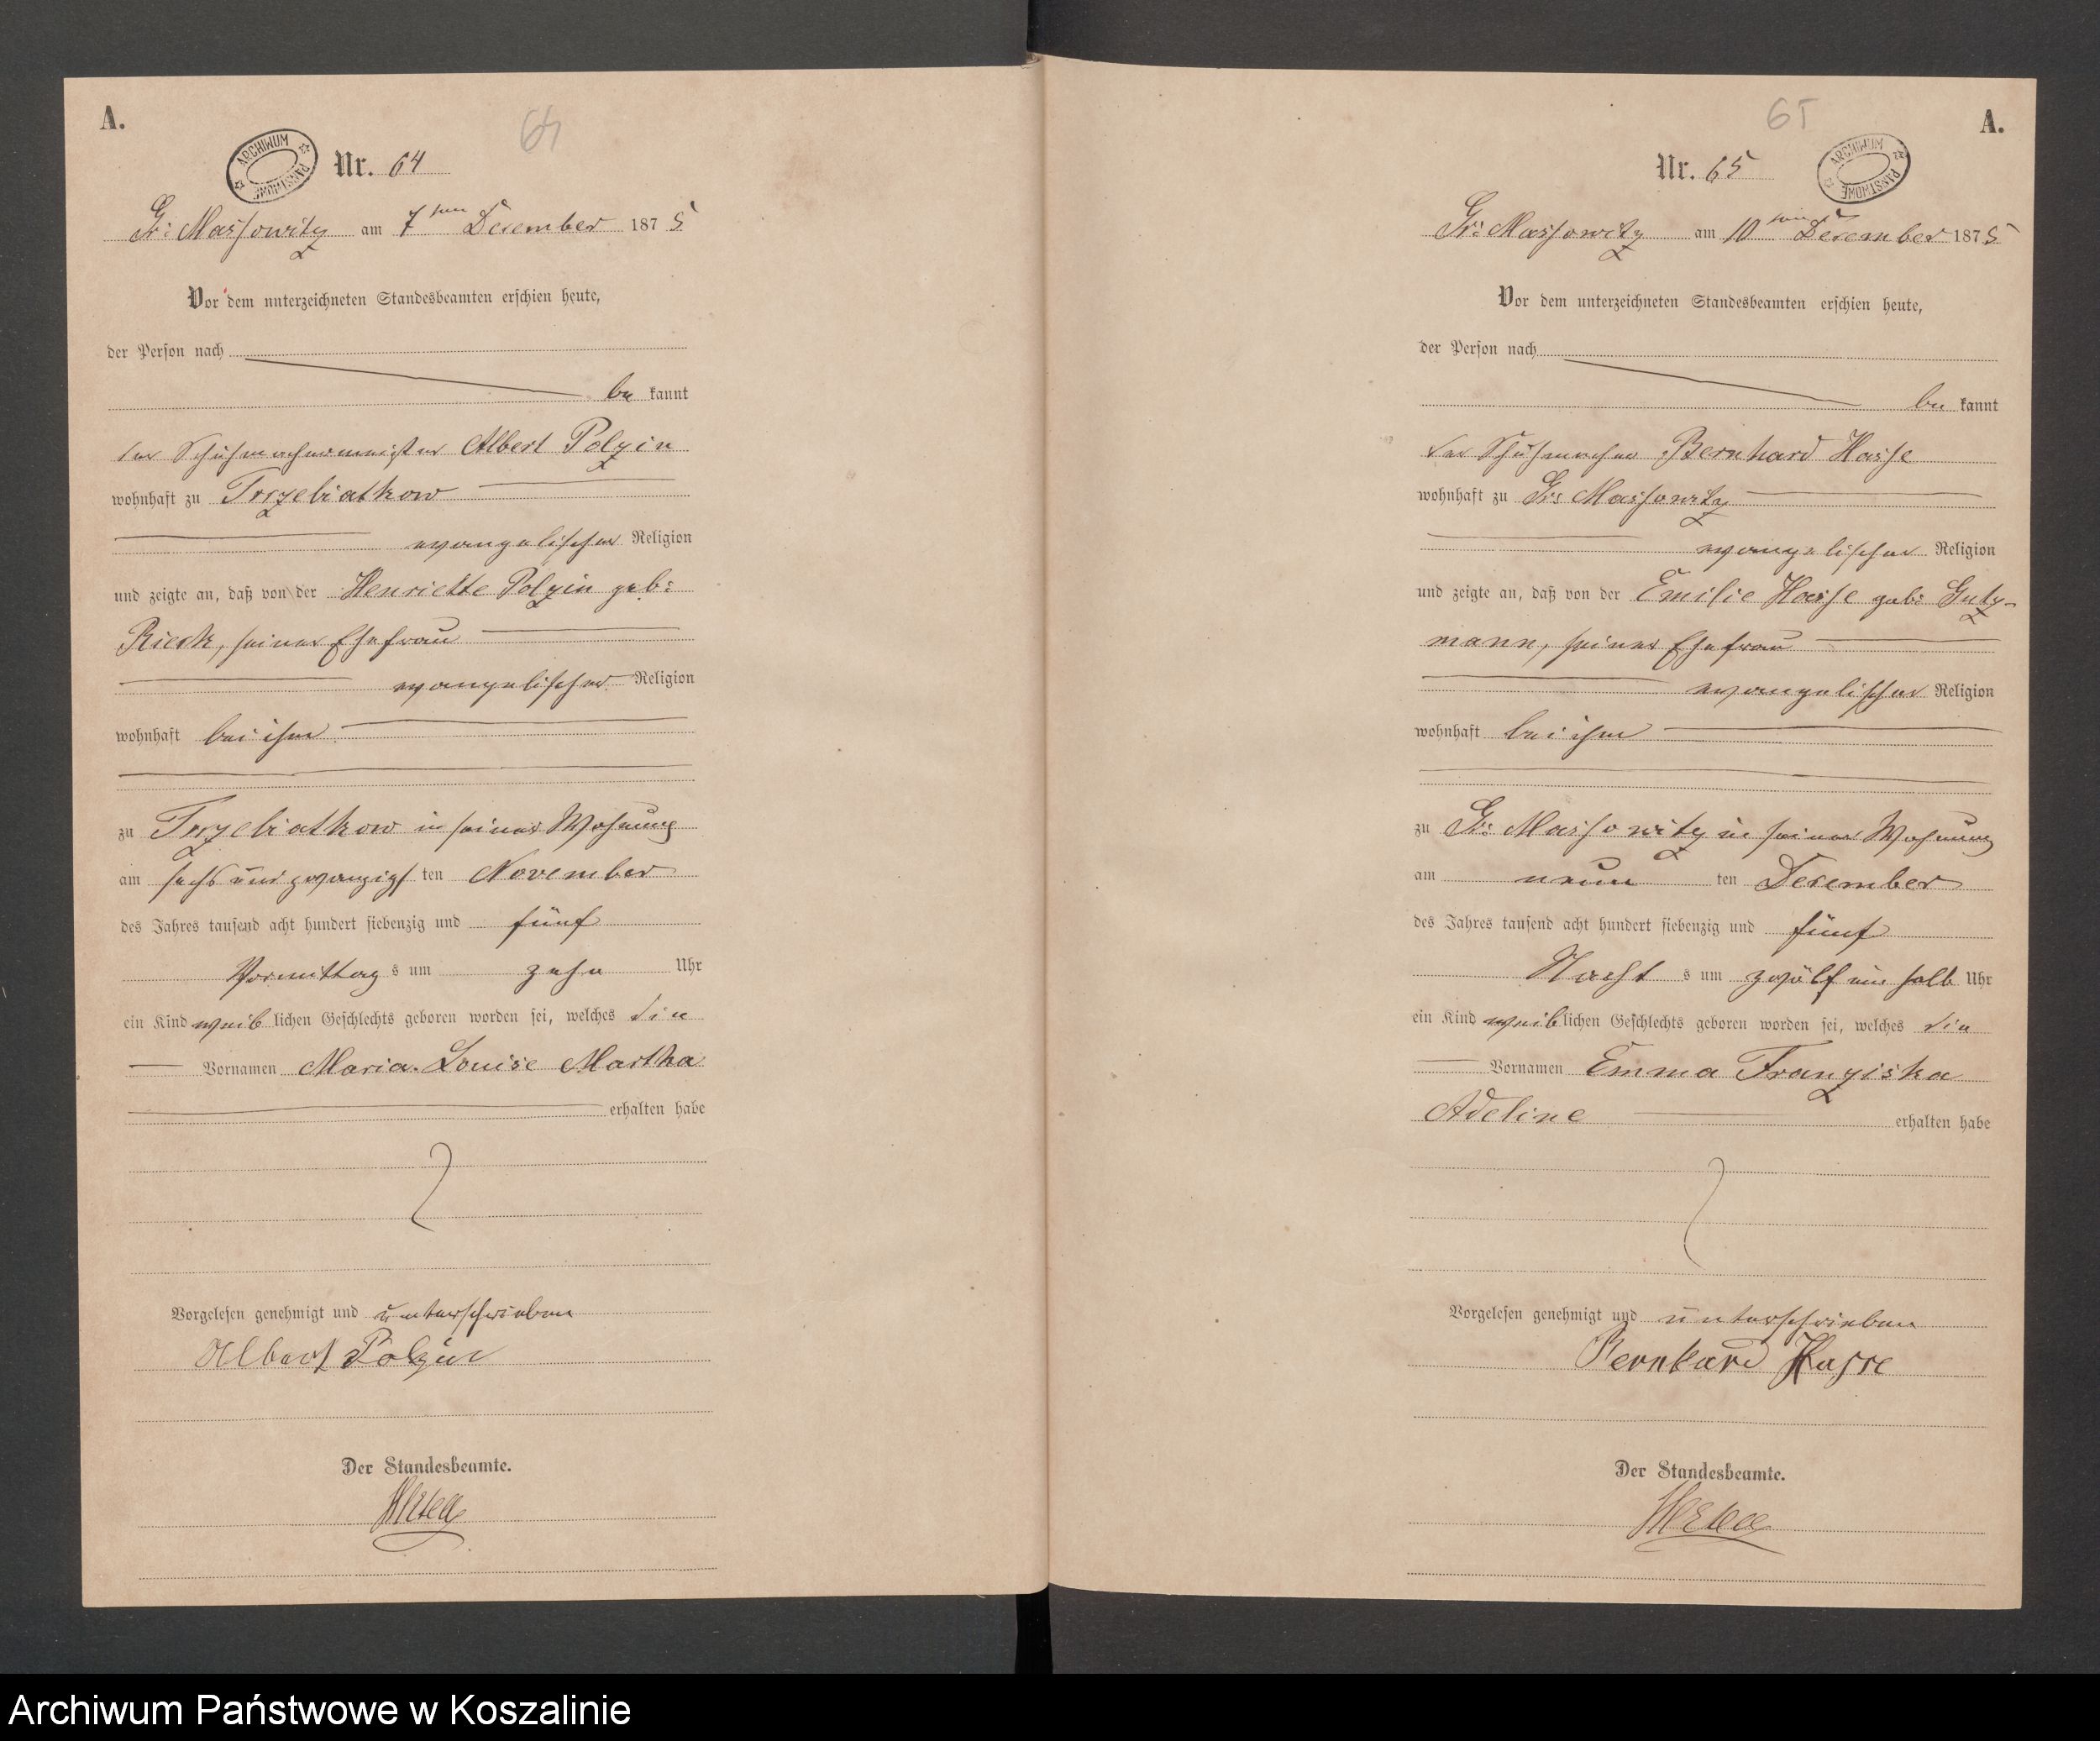 A.
64
ARCHIWUM PAŃSTWOWE
Nr. 64
Gr: Massowitz am 7ten December 1875
Vor dem unterzeichneten Standesbeamten erschien heute,
der Person nach
be kannt
der Schuhmachermeister Albert Polzin
wohnhaft zu Trzebiatkow
evangelischer Religion
und zeigte an, daß von der Henriette Polzin geb:
Rieck, seiner Ehefrau
evangelischer Religion
wohnhaft bei ihm
zu Trzebiatkow in seiner Wohnung
am sechs und zwanzigsten November
des Jahres tausend acht hundert siebenzig und fünf
Vormittags um zehn Uhr
ein Kind weiblichen Geschlechts geboren worden sei, welches die
Vornamen Maria Louise Martha
erhalten habe
Vorgelesen genehmigt und unterschrieben
Albert Polzin
Der Standesbeamte.
65
A.
Nr. 65
ARCHIWUM PAŃSTWOWE
Gr: Massowitz am 10ten December 1875
Vor dem unterzeichneten Standesbeamten erschien heute,
der Person nach
be kannt
der Schuhmacher Bernhard Hasse
wohnhaft zu Gr: Massowitz
evangelischer Religion
und zeigte an, daß von der Emilie Hasse geb: Gutz-
mann, seiner Ehefrau
evangelischer Religion
wohnhaft bei ihm
zu Gr: Massowitz in seiner Wohnung
am neun ten December
des Jahres tausend acht hundert siebenzig und fünf
Nachts um zwölf ein halb Uhr
ein Kind weiblichen Geschlechts geboren worden sei, welches die
Vornamen Emma Franziska
Adeline erhalten habe
Vorgelesen genehmigt und unterschrieben
Bernhard Hasse
Der Standesbeamte.
Archiwum Państwowe w Koszalinie